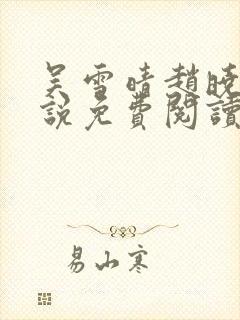 吴雪晴趙曉
說免費閱讀
易山寒